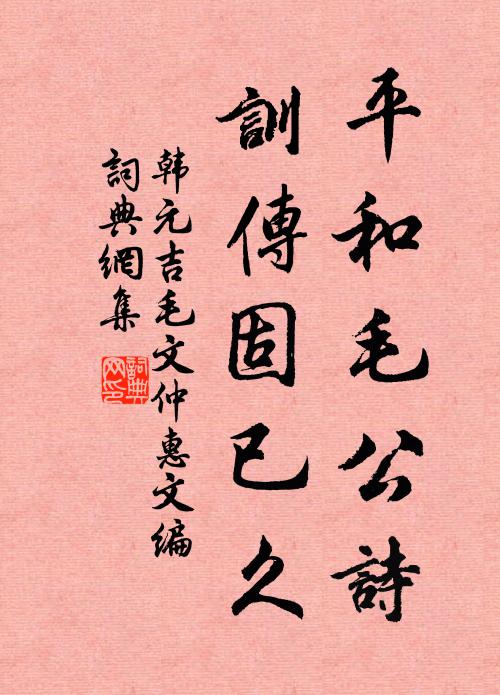 平和毛公詩
訓傳固已久
韩元吉毛文仲惠文编
詞典網集
詞典網印